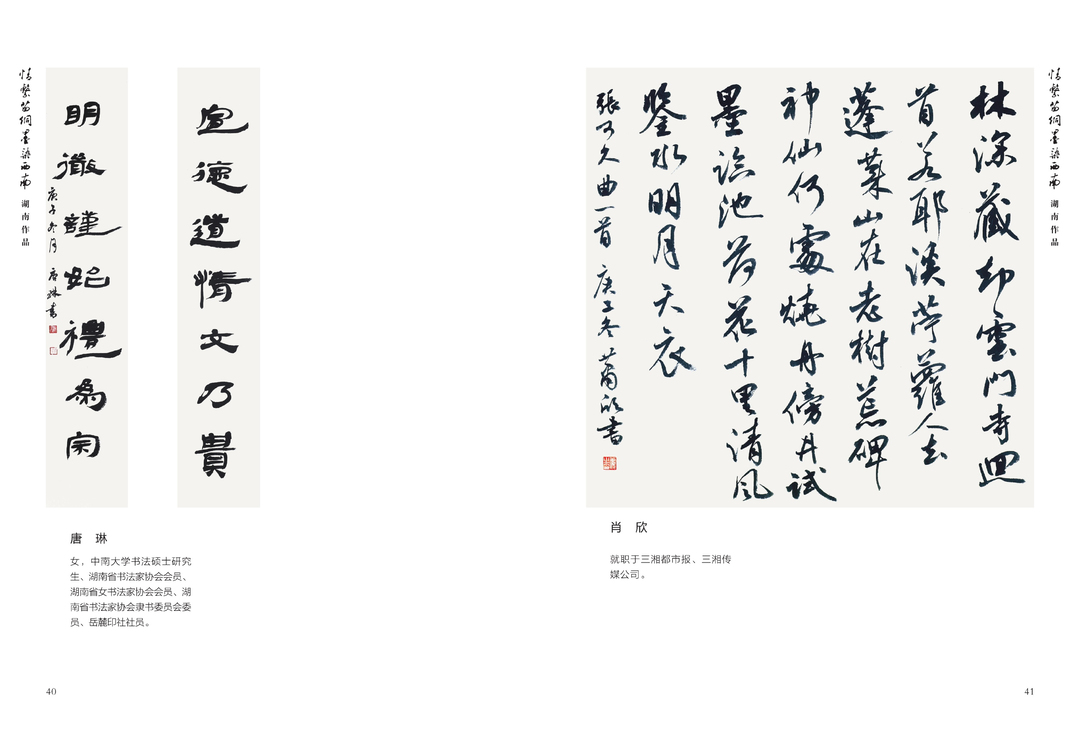 情繫
墨染西南 湖南作品
宣德道情文乃貴
明徵謹始禮為宗
庚子冬月 唐琳書
唐 琳
女，中南大学书法硕士研究
生、湖南省书法家协会会员、
湖南省女书法家协会会员、湖
南省书法家协会隶书委员会委
员、岳麓印社社员。
40
情繫
墨染西南 湖南作品
林深藏却雲門寺迴
首若耶溪苧蘿人去
蓬萊山在老樹荒碑
神仙何處燒丹傍井試
墨臨池荷花十里清風
鑒水明月天衣
張可久曲一首 庚子冬 蕭欣書
肖 欣
就职于三湘都市报、三湘传
媒公司。
41